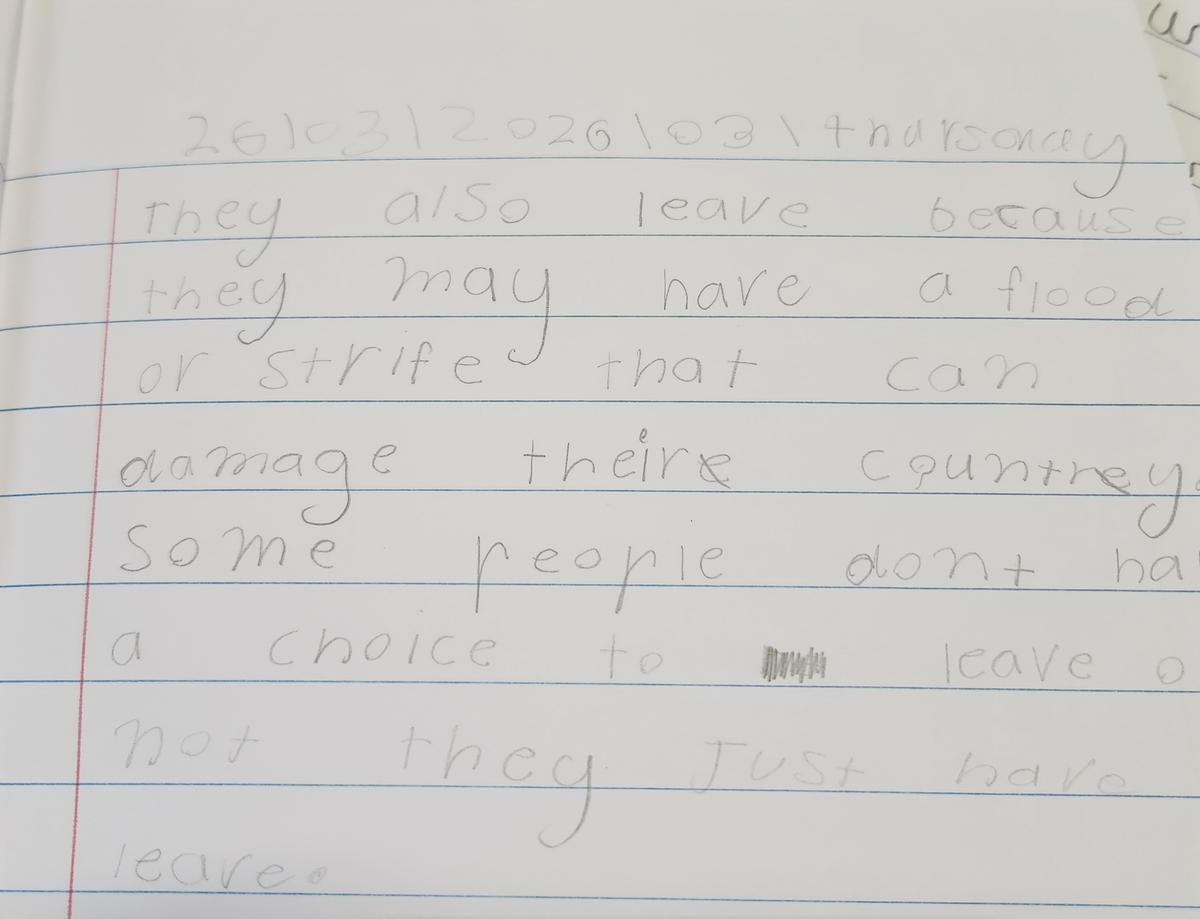 26/03/2026\03\thursonday
They also leave because
they may have a flood
or strife that can
damage theire countrey.
Some people dont ha
a choice to leave o
not they Just have
leave.